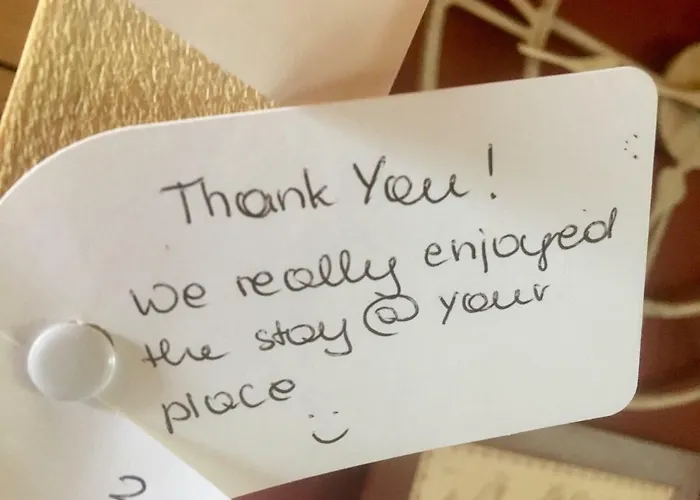 Thank You!
We really enjoyed
the stay @ your
place